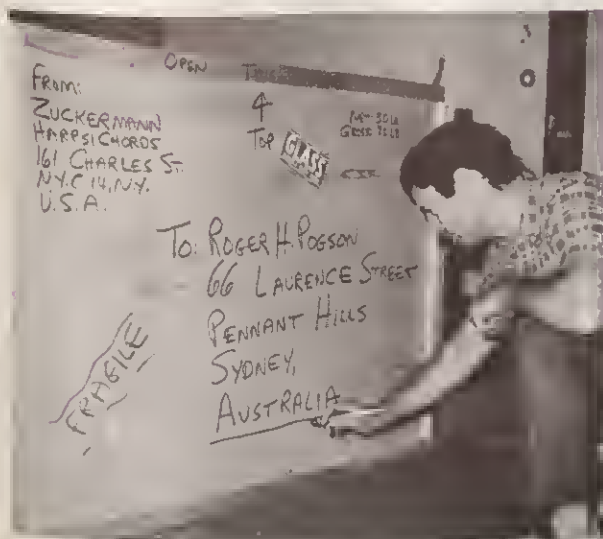 OPEN
FROM:
ZUCKERMANN
HARPSICHORDS
161 CHARLES ST.
N.Y.C 14, N.Y.
U.S.A.
4
TOP
GLASS
TO: ROGER H. POGSON
66 LAURENCE STREET
PENNANT HILLS
SYDNEY,
AUSTRALIA
FRAGILE